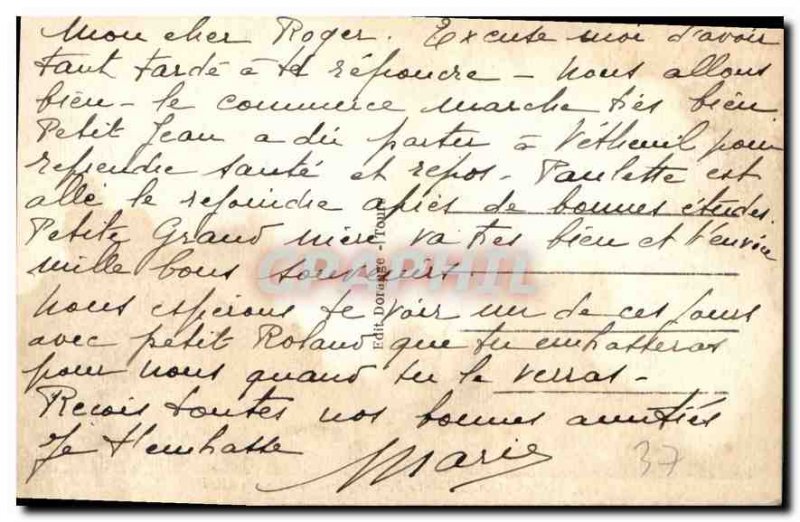 Mon cher Roger. Excuse moi d'avoir
tant tardé à te répondre - nous allons
bien - le commerce marche très bien
Petit Jean a dû partir à Vétheuil pour
reprendre santé et repos - Paulette est
allé le rejoindre après de bonnes études.
Petite Grand mère va très bien et t'envoie
mille bons souvenirs.
nous espérons te voir un de ces jours
avec petit Roland que tu embrasseras
pour nous quand tu le verras -
Reçois toutes nos bonnes amitiés
Je t'embrasse Marie
37
Edit. Dorange - Tours
CPAPHIL